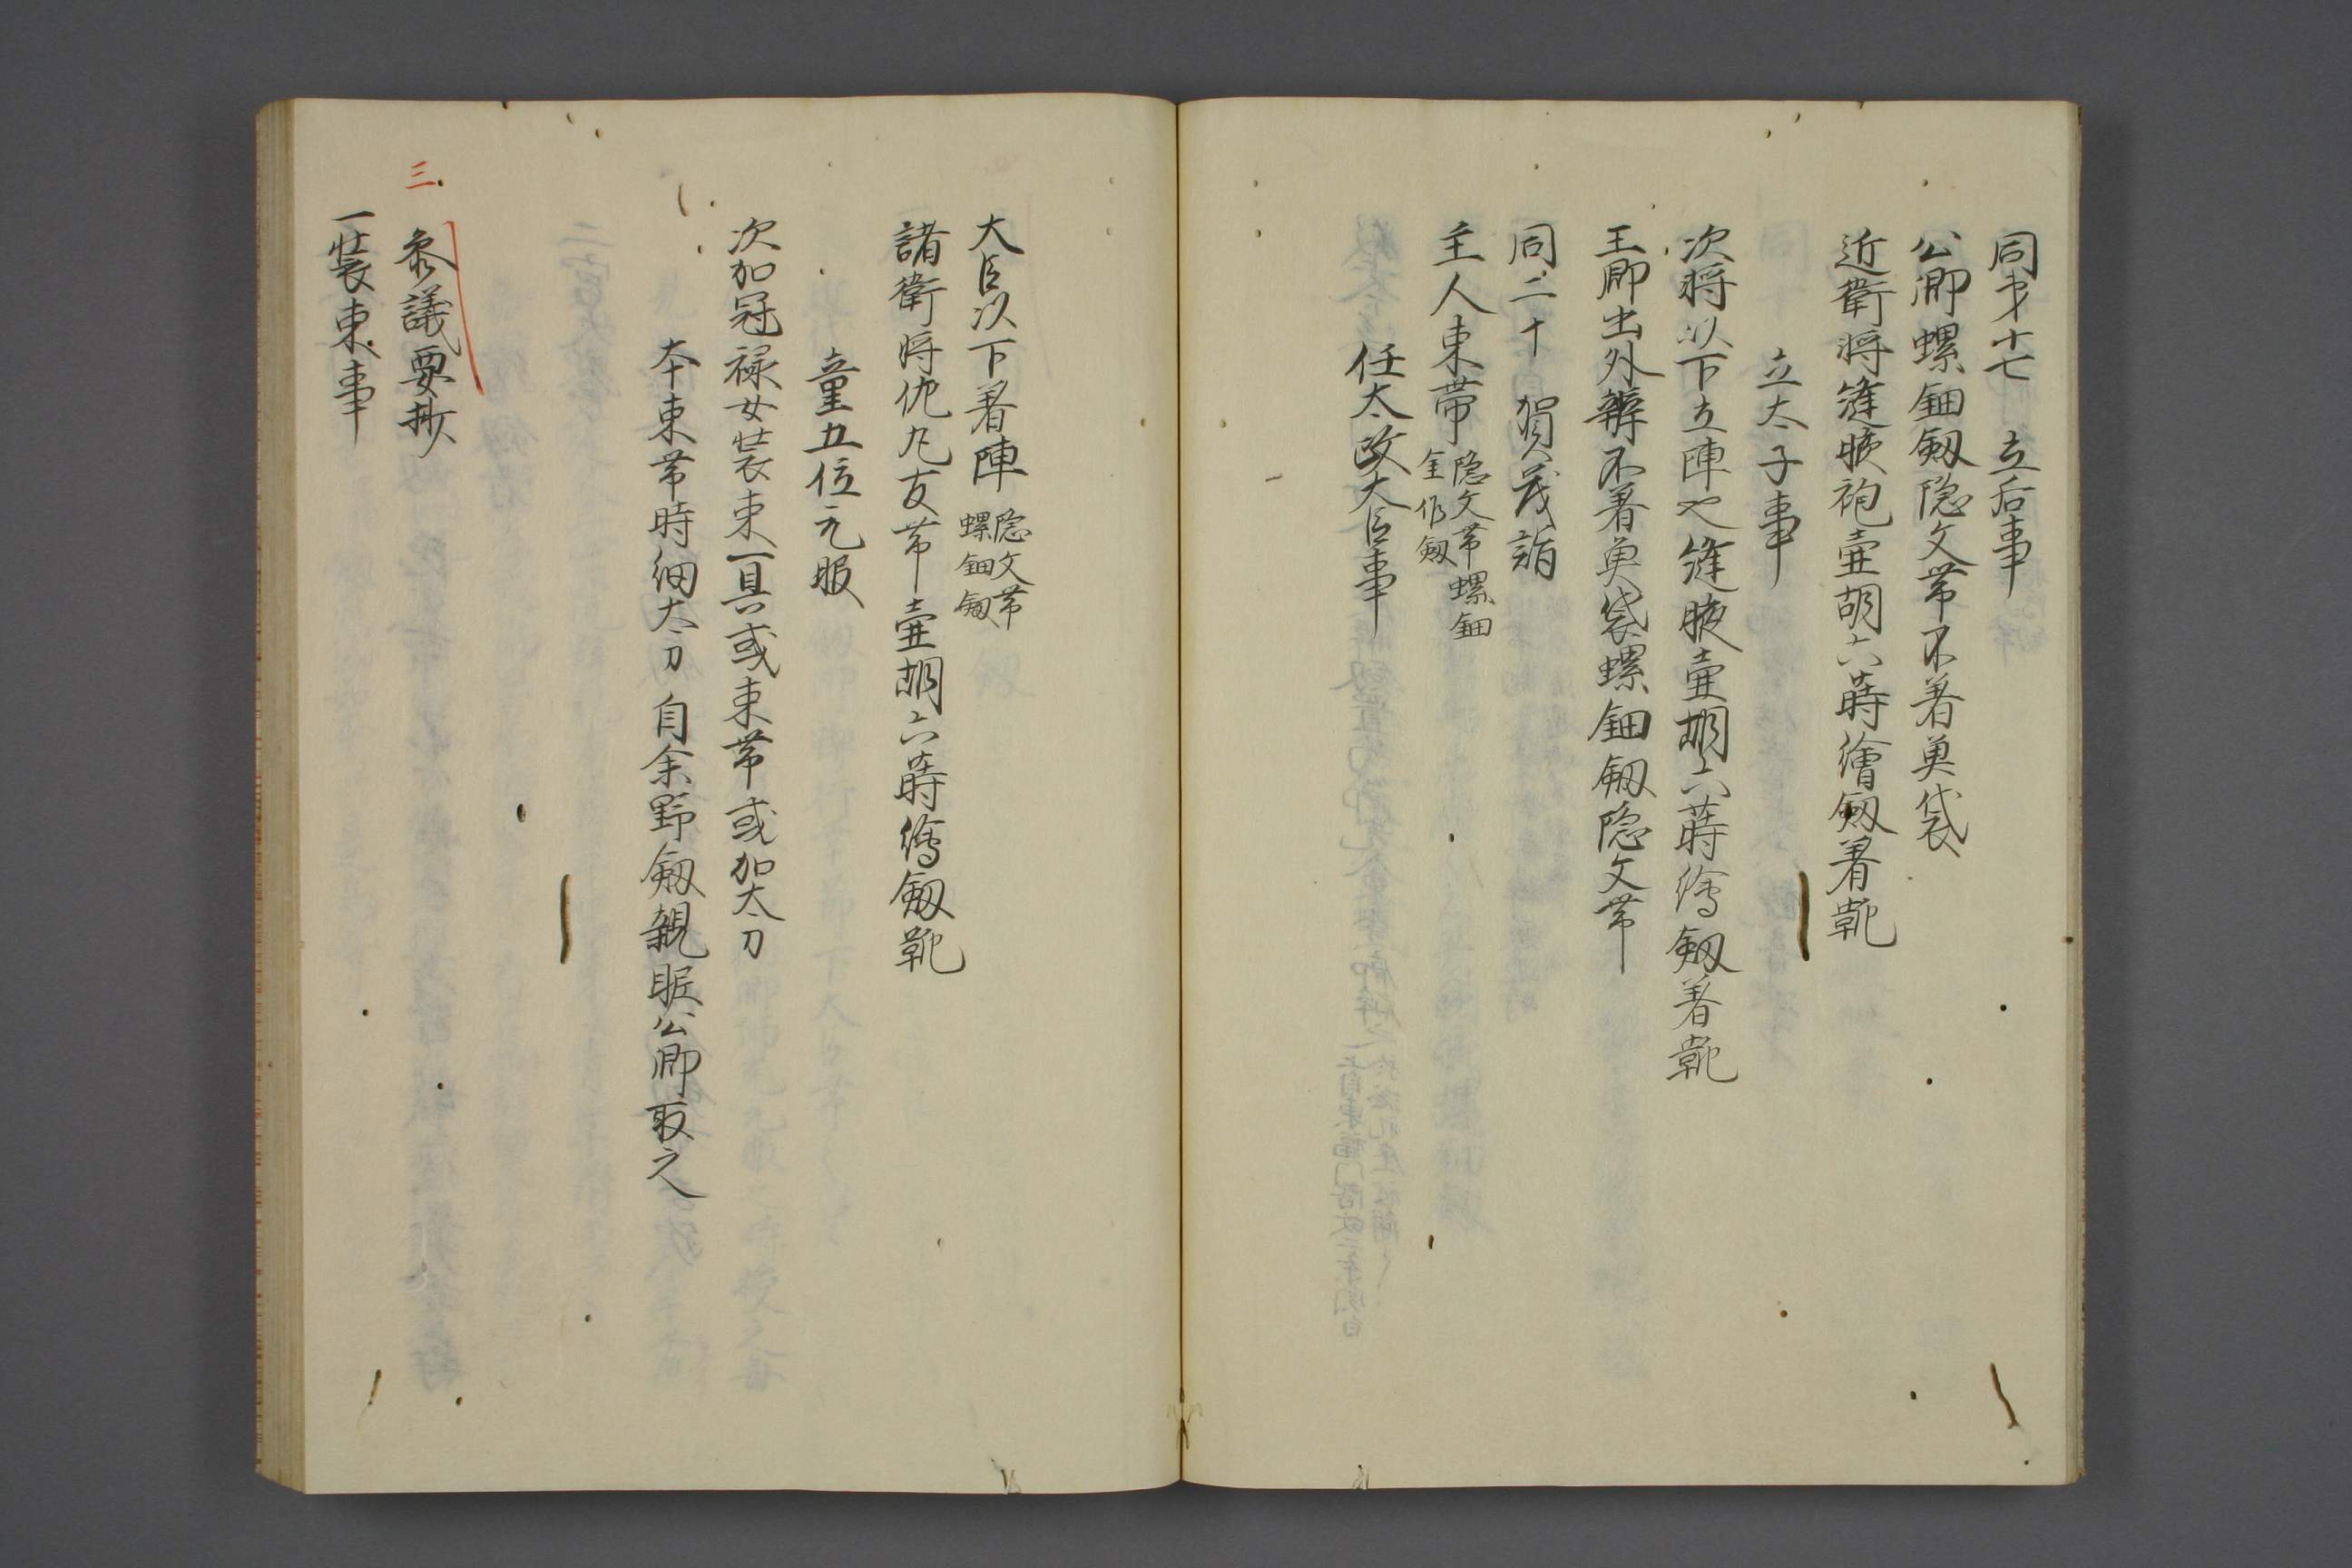 同第十七 立后事
公卿螺鈿釼隠文帯不著魚袋
近衛将縫腋袍壷胡六蒔繪釼著靴
立太子事
次将以下立陣也縫腋壷胡六蒔繪釼著靴
王卿出外辨不著魚袋螺鈿釼隠文帯
同二十 賀茂詣
主人束帯 隠文帯螺鈿
金作釼
任太政大臣事
大臣以下著陣 隠文帯
螺鈿釼
諸衛将佐丸友帯壷胡六蒔繪釼靴
童五位元服
次加冠禄女装束一具或束帯或加太刀
本束帯時細太刀 自余野釼親昵公卿取之
三
参議要抄
一装束事